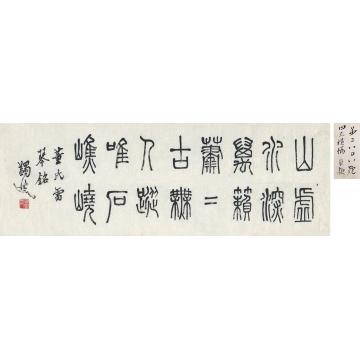 山虛
水深
萬籟
蕭〻
古無
人蹤
唯石
嶕嶢
董氏雷
琴銘
蠲叟